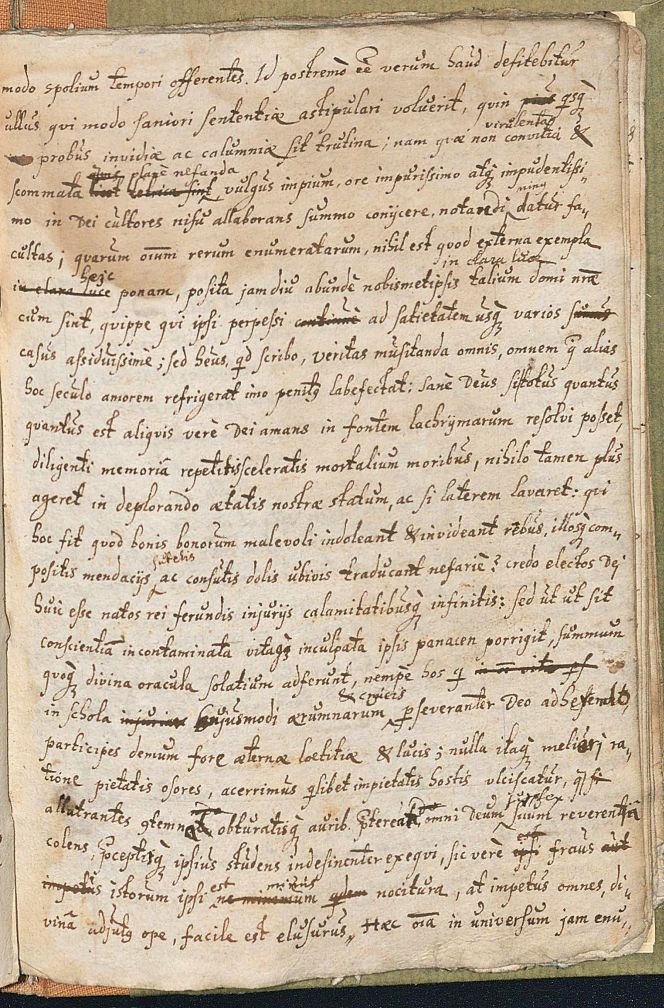 modo spolium tempori offerentes. Id postremò ēē verum haud defitebitur
ullus qvi modo saniori sententiæ astipulari voluerit, qvin qsq̀
virulenta
probus invidiæ ac calumniæ sit trutina; nam qvæ non convitia &
plane nefanda
scommata vulgus impium, ore impurissimo atq̨ impudentissi-
mo in Dei cultores nisu allaborans summo conijcere, notandi datur fa-
cultas; qvarum oīum rerum enumeratarum, nihil est qvod externa exempla
hæic in clara luce
in clara luce ponam, posita jam diu abundè nobismetipsis talium domi nrā
cum sint, quippe qvi ipsi perpessi ad satietatem usq̨ varios
casus assiduissimè; sed heus, qd scribo, veritas musitanda omnis, omnem q̄ alias
hoc seculo amorem refrigerat imo penitq̨ labefectat: Sanè Deus si totus qvantus
qvantus est aliqvis verè Dei amans in fontem lachrymarum resolvi posset,
diligenti memoriâ repetitis sceleratis mortalium moribus, nihilo tamen plus
ageret in deplorando ætatis nostræ statum, ac si laterem lavaret: qvi
hoc fit qvod bonis bonorum malevoli indoleant & invideant rebus, illosq̨ com-
futelis
positis mendacijs ac consutis dolis ubivis traducant nefariè? credo electos Dei
huic esse natos rei ferundis injurijs calamitatibusq̨ infinitis: sed ut ut sit
conscientia incontaminata vitaq̨ inculpata ipsis panacen porrigit, summum
qvoq̨ divina oracula solatium adferunt, nempè hos q
& crucis
in schola hujusmodi ærumnarum perseveranter Deo adhe
participes demum fore æternæ lœtitiæ & lucis; nulla itaq̨ meliori ra-
tione pietatis osores, acerrimus qlibet impietatis hostis ulciscatur, q si
allatrantes obturatisq̨ aurib. omni Deum suum reverentiâ
colens, p̄ceptisq̨ ipsius studens indefinenter exeqvi, sic verè fraus aut
est minus
impetus istorum ipsi ne minimum qdem nocitura, at impetus omnes, di-
vinâ adjutq̨ ope, facile est elusurus. Hæc oīa in universum jam enu-